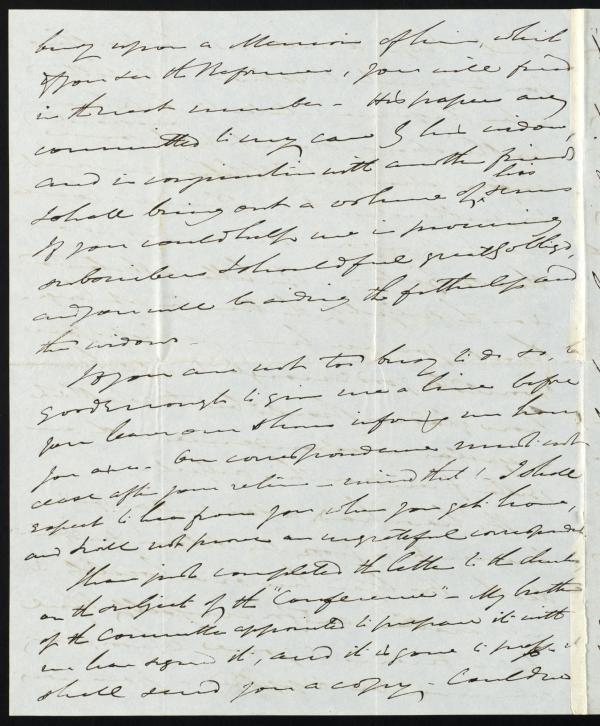 busy upon a Memoir of him, which
if you see the Reformer, you will find
in the next number - His papers are
committed to my care by his widow,
and in conjunction with another friend
I shall bring out a volume of his
If you could help me in procuring
subscribers I should feel greatly oblig'd,
and you will be aiding the fatherless and
the widow -
If you are not too busy to do so, be
good enough to give me a line before
you leave our shores informing me how
you are - Our correspondence must not
cease after your return - mind that! I shall
expect to hear from you when you get home,
and shall not prove an ungrateful correspondent.
I have just completed the letter to the
on the subject of the "Conference" - My
of the Committee appointed to prepare it with
me have signed it, and it is gone to press. I
shall send you a copy - Could we